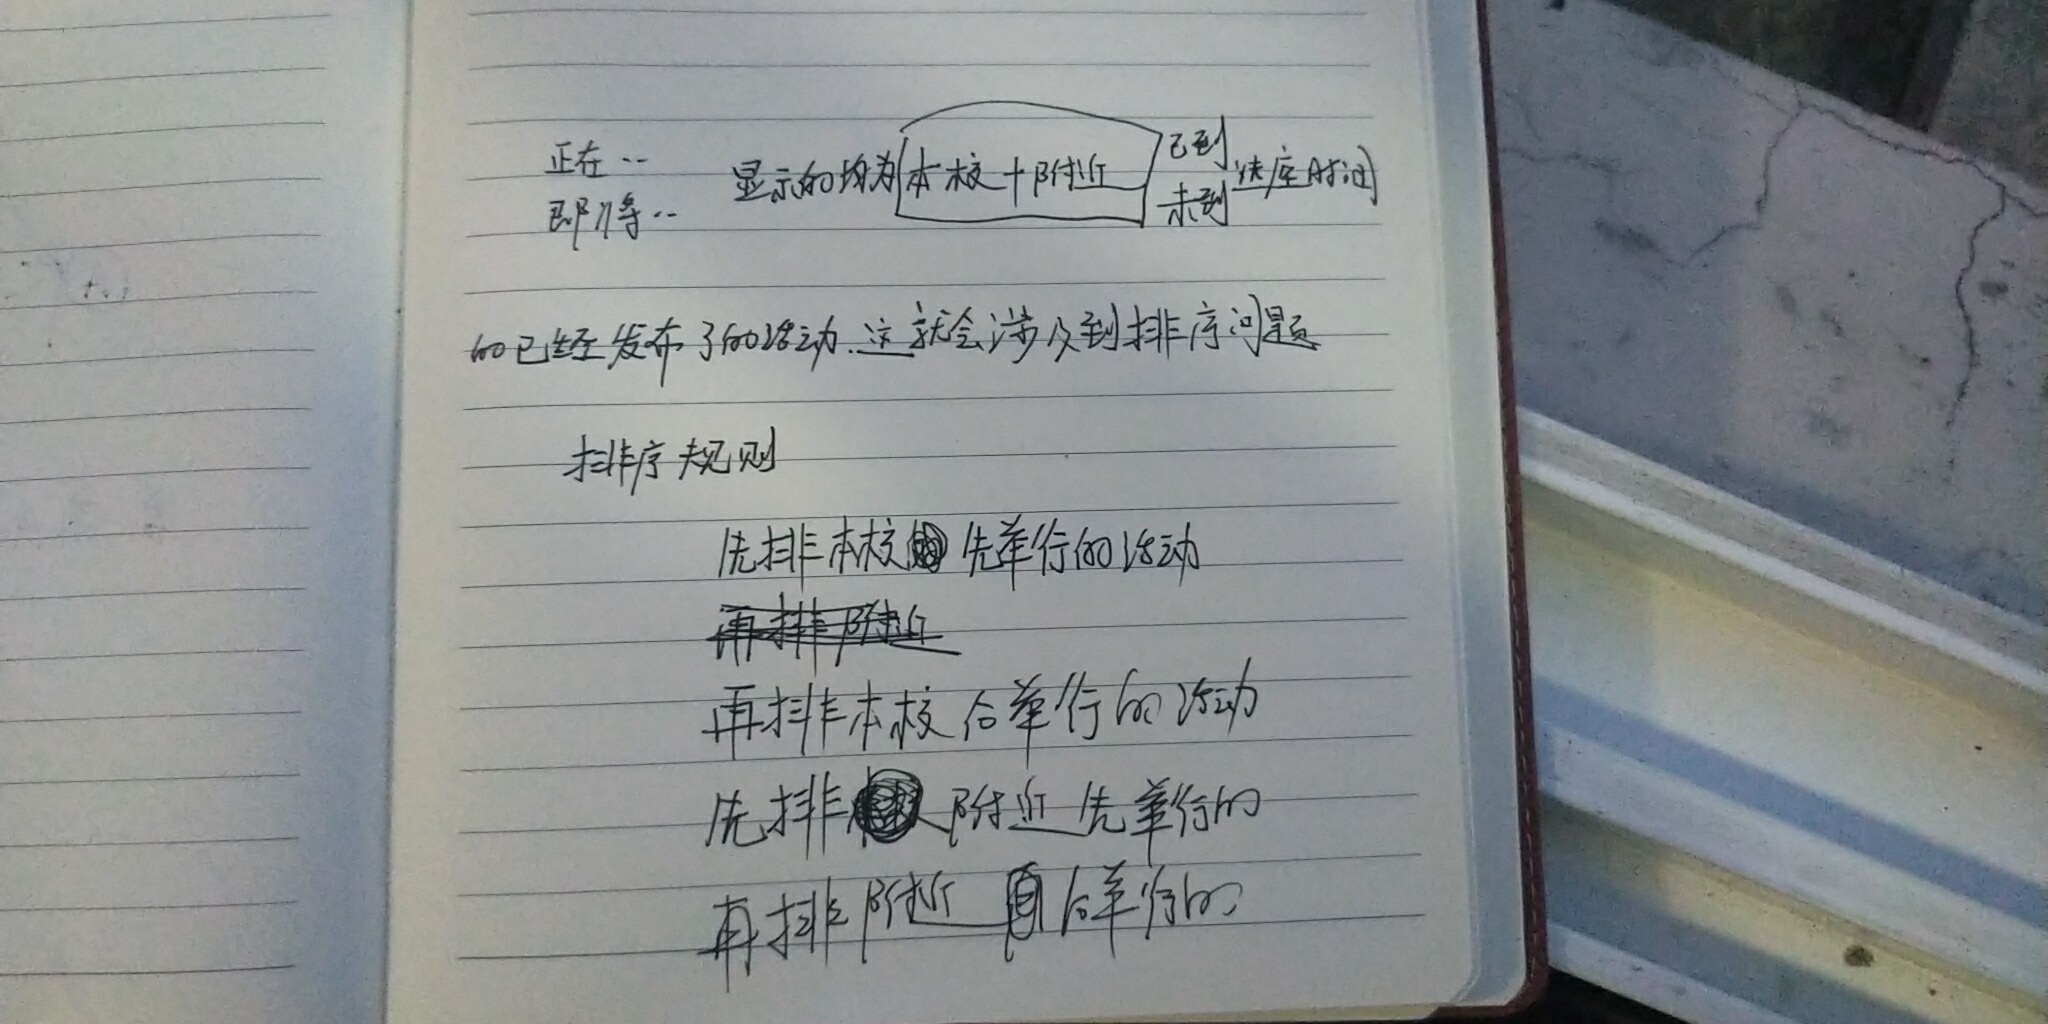 正在‥ 显示的均为 本校+附近 已到 讲座时间
即将‥ 未到
的已经发布了的活动.这就会涉及到排序问题
排序规则
先排本校 先举行的活动
再排附近
再排本校后举行的活动
先排 附近先举行的
再排附近 后举行的